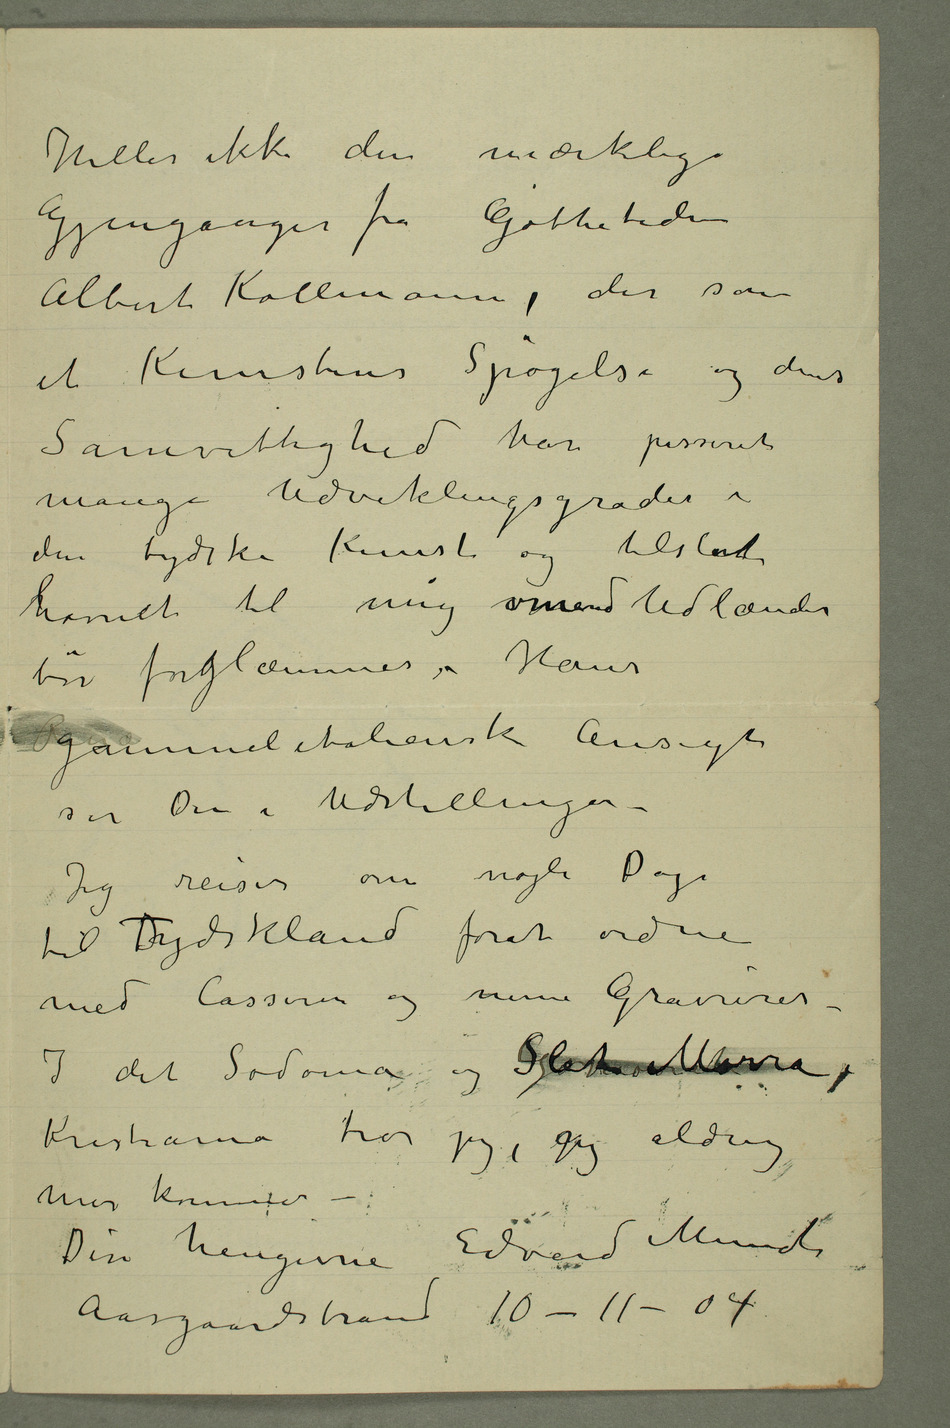 Heller ikke den mærkelige
Gjenganger fra Göthetiden
Albert Kollmann, der som
et Kunstens Spögelse og dens
Samvittighed har passeret
mange Udviklingsgrader i
den tydske Kunst og tilslut
havnet til mig Udlænder
bör forglæmmes. Hans
gammelitalienske Ansigt
ser De i Udstillingen –
Jeg reiser om nogle Dage
til Tydskland forat ordne
med Cassirer og mine Gravurer –
I det Sodoma og
Kristiania tror jeg, jeg aldrig
mer kommer –
Din hengivne Edvard Munch
Aasgaardstrand 10 – 11 – 04